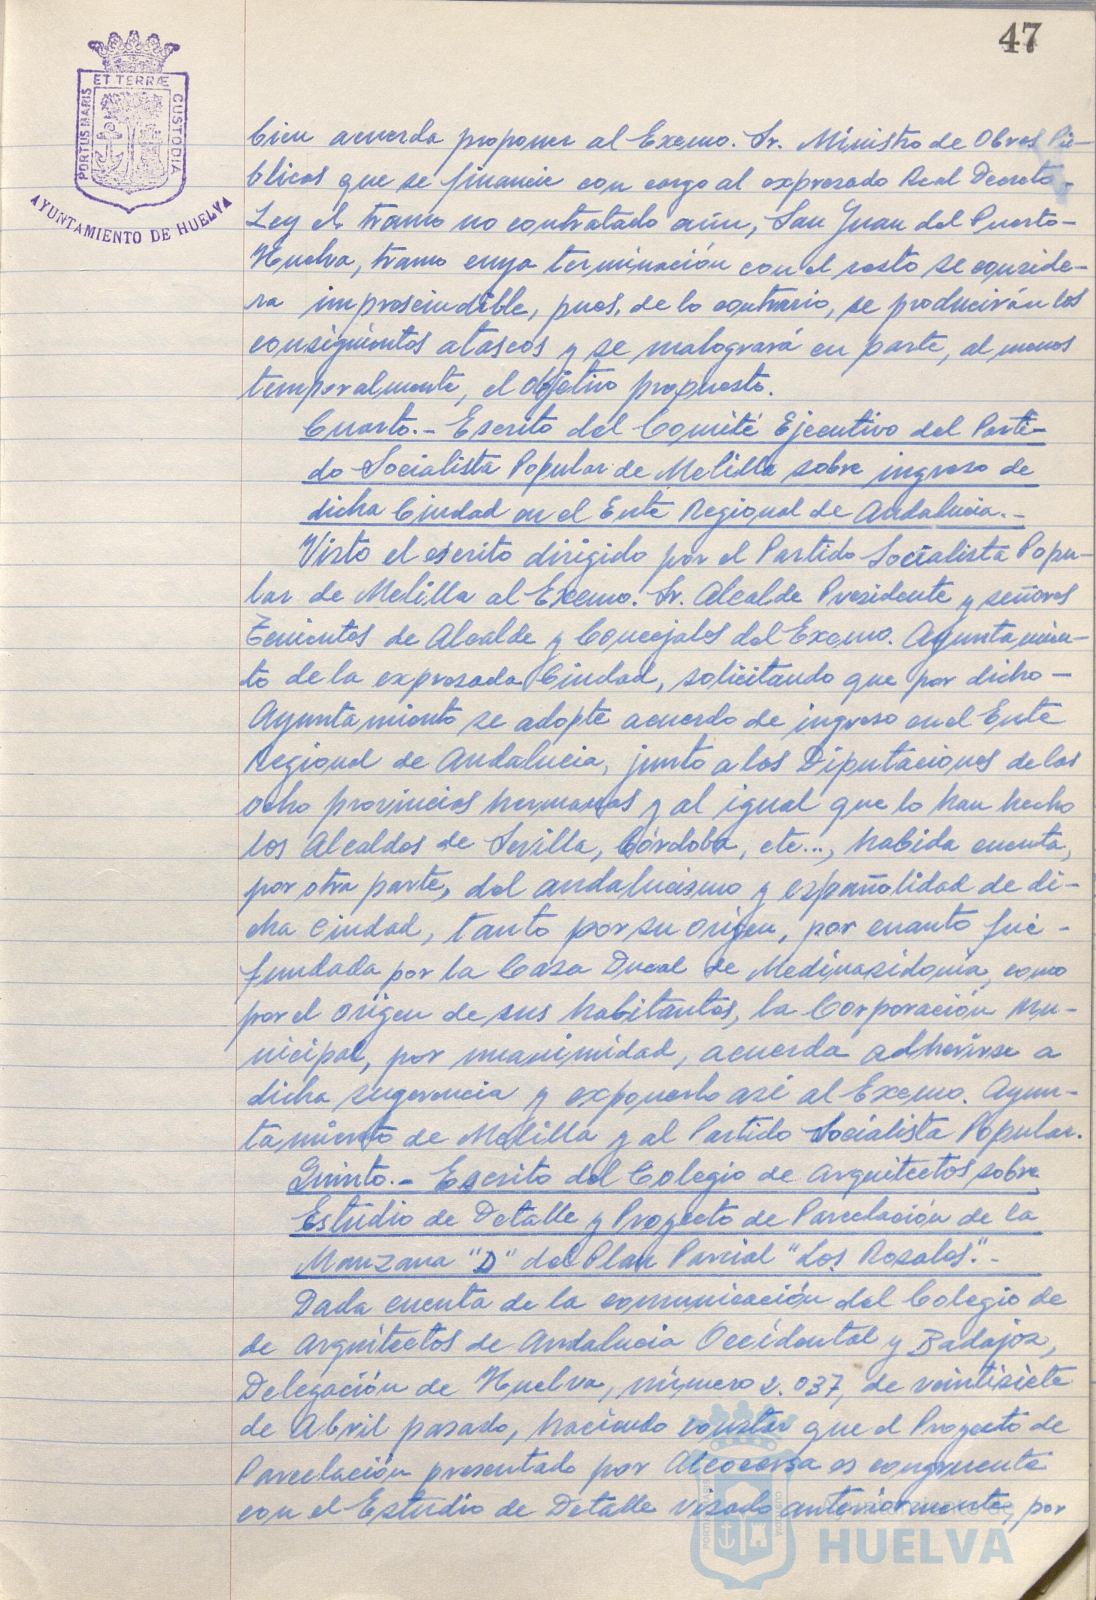 47
PORTUS MARIS ET TERRÆ CUSTODIA
AYUNTAMIENTO DE HUELVA
bien acuerda proponer al Excmo. Sr. Ministro de Obras Pú-
blicas que se financie con cargo al expresado Real Decreto-
Ley el tramo no contratado aún, San Juan del Puerto-
Huelva, tramo cuya terminación con el resto se conside-
ra imprescindible, pues, de lo contrario, se producirán los
consiguientes atascos y se malogrará en parte, al menos
temporalmente, el objetivo propuesto.
Cuarto.- Escrito del Comité Ejecutivo del Parti-
do Socialista Popular de Melilla sobre ingreso de
dicha Ciudad en el Ente Regional de Andalucia.-
Visto el escrito dirigido por el Partido Socialista Popu-
lar de Melilla al Excmo. Sr. Alcalde Presidente y señores
Tenientes de Alcalde y Concejales del Excmo. Ayuntamien-
to de la expresada Ciudad, solicitando que por dicho-
Ayuntamiento se adopte acuerdo de ingreso en el Ente
Regional de Andalucia, junto a las Diputaciones de las
ocho provincias hermanas y al igual que lo han hecho
los Alcaldes de Sevilla, Córdoba, etc..., habida cuenta,
por otra parte, del andalucismo y españolidad de di-
cha Ciudad, tanto por su origen, por cuanto fué-
fundada por la Casa Ducal de Medinasidonia, como
por el origen de sus habitantes, la Corporación Mu-
nicipal, por unanimidad, acuerda adherirse a
dicha sugerencia y exponerlo así al Excmo. Ayun-
tamiento de Melilla y al Partido Socialista Popular.
Quinto.- Escrito del Colegio de Arquitectos sobre
Estudio de Detalle y Proyecto de Parcelación de la
Manzana "D" del Plan Parcial "Los Rosales".-
Dada cuenta de la comunicación del Colegio de
de Arquitectos de Andalucia Occidental y Badajoz,
Delegación de Huelva, número 2.037, de veintisiete
de Abril pasado, haciendo constar que el Proyecto de
Parcelación presentado por Alcocersa es congruente
con el Estudio de Detalle visado anteriormente, por
HUELVA